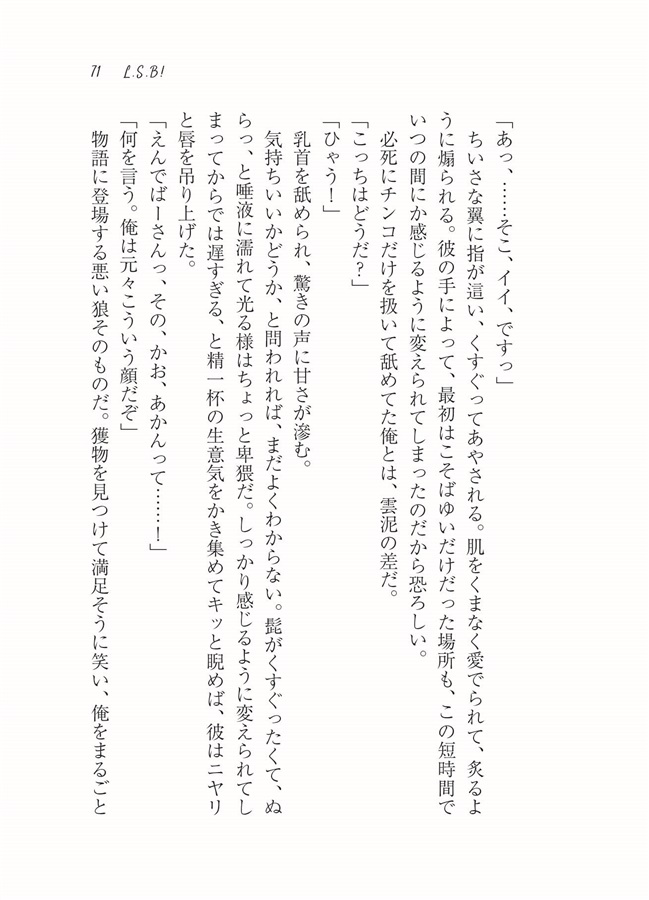 71 L.S.B!
「あっ、……そこ、イイ、ですっ」
ちいさな翼に指が這い、くすぐってあやされる。肌をくまなく愛でられて、炙るよ
うに煽られる。彼の手によって、最初はこそばゆいだけだった場所も、この短時間で
いつの間にか感じるように変えられてしまったのだから恐ろしい。
必死にチンコだけを扱いて舐めてた俺とは、雲泥の差だ。
「こっちはどうだ？」
「ひゃう！」
乳首を舐められ、驚きの声に甘さが滲む。
気持ちいいかどうか、と問われれば、まだよくわからない。髭がくすぐったくて、ぬ
らっ、と唾液に濡れて光る様はちょっと卑猥だ。しっかり感じるように変えられてし
まってからでは遅すぎる、と精一杯の生意気をかき集めてキッと睨めば、彼はニヤリ
と唇を吊り上げた。
「えんでばーさんっ、その、かお、あかんって……！」
「何を言う。俺は元々こういう顔だぞ」
物語に登場する悪い狼そのものだ。獲物を見つけて満足そうに笑い、俺をまるごと